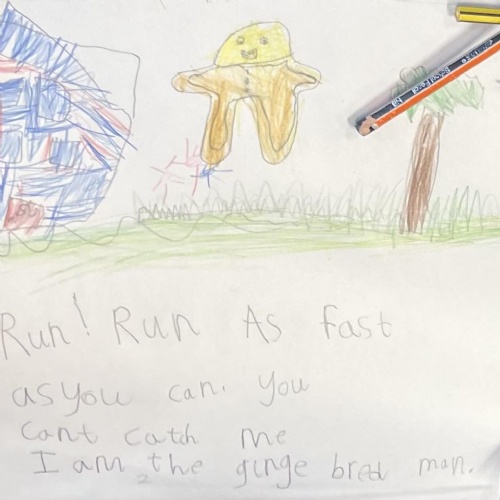 Run! Run As fast
as you can. you
cant catch me
I am the ginge bred man.